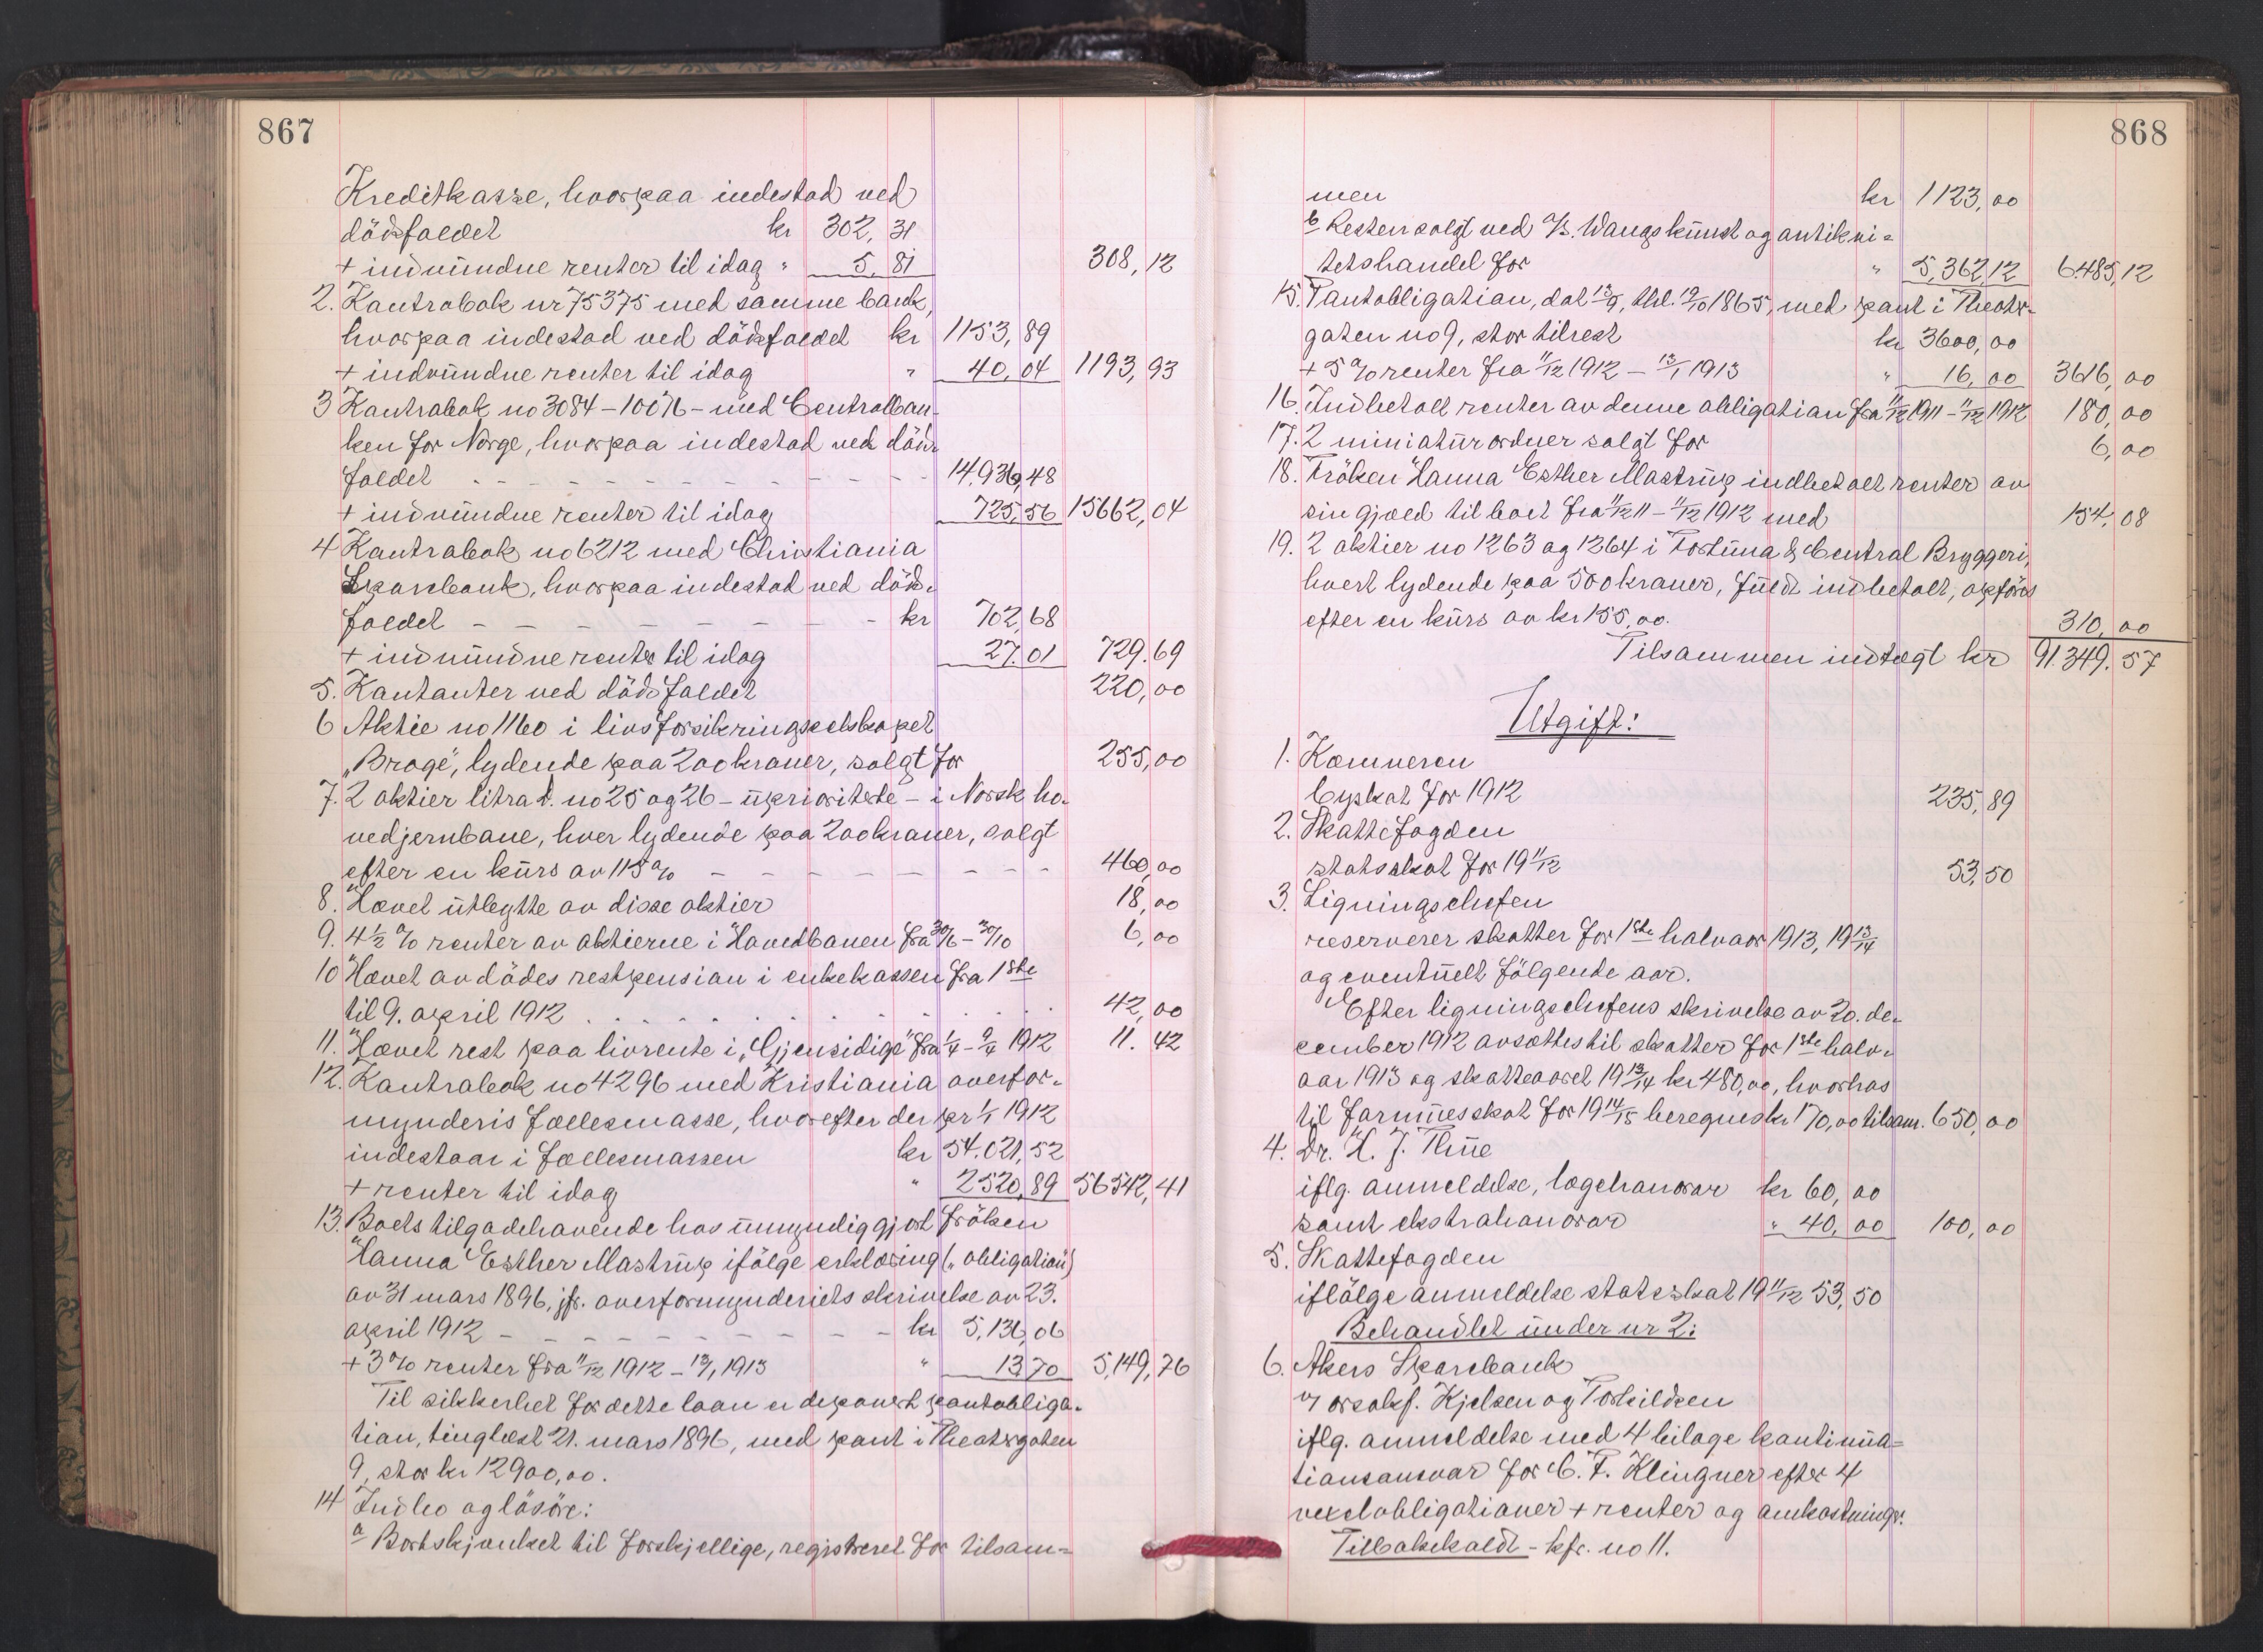 867
Kreditkasse, hvorpaa indestod ved
dödsfaldet kr 302,31
+ indvundne renter til idag " 5,81 308,12
2. Kontrabok nr 75375 med samme bank,
hvorpaa indestod ved dödsfaldet kr 1153,89
+ indvundne renter til idag " 40,04 1193,93
3 Kontrabok no 3084 – 10076 – med Centralban-
ken for Norge, hvorpaa indestod ved döds-
faldet - - - 14,936,48
+ indvundne renter til idag 725,56 15662,04
4 Kontrabok no 6212 med Christiania
Sparebank, hvorpaa indestod ved döds-
faldet - - - kr 702,68
+ indvundne renter til idag 27.01 729.69
5. Kontanter ved dödsfaldet 220,00
6 Aktie no 1160 i livsforsikringsselskapet
„Brage", lydende paa 200 kroner, solgt for 255,00
7. 2 aktier litra d. no 25 og 26 – uprioriterte – i Norsk ho-
vedjernbane, hver lydende paa 200 kroner, solgt
efter en kurs av 115 % - - - 460,00
8. Hævet utbytte av disse aktier 18,00
9. 4½ % renter av aktierne i Hovedbanen fra 30/6 – 30/10 6,00
10 Hævet avdödes restpension i enkekassen fra 1ste
til 9. april 1912 . . . 42,00
11. Hævet rest paa livrente i „Gjensidige" fra 1/4 – 9/4 1912 11.42
12. Kontrabok no 4296 med Kristiania overfor-
mynderis fællesmasse, hvorefter der pr 1/1 1912
indestaar i fællesmassen kr 54.021,52
+ renter til idag " 2520,89 56542,41
13. Boets tilgodehavende hos umyndiggjort fröken
Hanna Esther Mastrup ifölge erklæring („obligation")
av 31 mars 1896, jfr. overformynderiets skrivelse av 23.
april 1912 - - - kr 5,136,06
+ 3 % renter fra 11/12 1912 – 13/1 1913 " 13,70 5,149,76
Til sikkerhet for dette laan er deponert pantobliga-
tion, tinglæst 21. mars 1896, med pant i Theatergaten
9, stor kr 12900,00.
14 Indbo og lösöre:
a Bortskjænket til forskjellige, registreret for tilsam-
868
men kr 1123,00
b Resten solgt ved A/S. Wangs kunst og antikvi-
tetshandel for " 5,362,12 6.485,12
15. Pantobligation, dat 13/9, thl. 19/10 1865, med pant i Theater-
gaten no 9, stor tilrest kr 3600,00
+ 5 % renter fra 11/12 1912 – 13/1 1913 " 16,00 3616,00
16. Indbetalt renter av denne obligation fra 11/12 1911 – 11/12 1912 180,00
17. 2 miniatur ordner solgt for 6,00
18. Fröken Hanna Esther Mastrup indbetalt renter av
sin gjæld til boet fra 11/12 11 – 11/12 1912 med 154,08
19. 2 aktier no 1263 og 1264 i Fortuna & Central Bryggeri,
hvert lydende paa 500 kroner, fuldt indbetalt, opföres
efter en kurs av kr 155,00. 310,00
Tilsammen indtægt kr 91.349.57
Utgift:
1. Kæmneren
byskat for 1912 235,89
2. Skattefogden
statsskat for 19 11/12 53,50
3. Ligningschefen
reserverer skatter for 1ste halvaar 1913, 19 13/14
og eventuelt fölgende aar.
Efter ligningschefens skrivelse av 20. de-
cember 1912 avsættes til skatter for 1ste halv-
aar 1913 og skatteaaret 19 13/14 kr 480,00, hvorhos
til formuesskat for 19 14/15 beregnes kr 170,00 tilsam. 650,00
4. Dr. H. J. Thue
iflg. anmeldelse, lægehonorar kr 60,00
samt ekstrahonorar " 40,00 100,00
5. Skattefogden
iflölge anmeldelse statsskat 19 11/12 53,50
Behandlet under nr 2:
6. Akers Sparebank
v/ orsakf. Kjelsen og Torkildsen
iflg. anmeldelse med 4 bilage kontinua-
tionsansvar for C. F. Klingner efter 4
vexelobligationer + renter og omkostninger.
Tilbakekaldt – kfr. no 11.